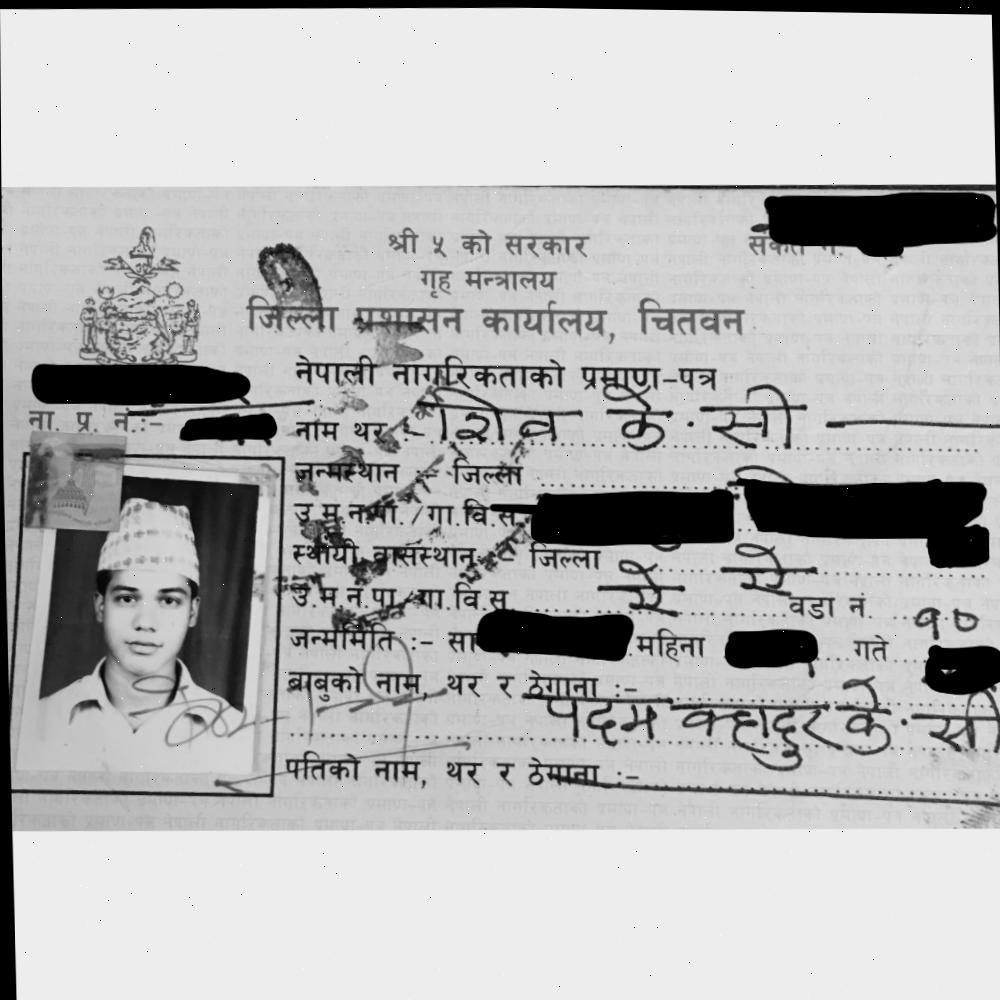 श्री ५ को सरकार
गृह मन्त्रालय
जिल्ला प्रशासन कार्यालय, चितवन
नेपाली नागरिकताको प्रमाण-पत्र
ना. प्र. नं.:-
नाम थर :- शिव के. सी
जन्मस्थान :- जिल्ला
उ.म.न.पा./गा.वि.स.
स्थायी वासस्थान :- जिल्ला
उ.म.न.पा./गा.वि.स. वडा नं १०
जन्ममिति :- सा महिना गते
बाबुको नाम, थर र ठेगाना :-
पदम बहादुर के. सी
पतिको नाम, थर र ठेगाना :-